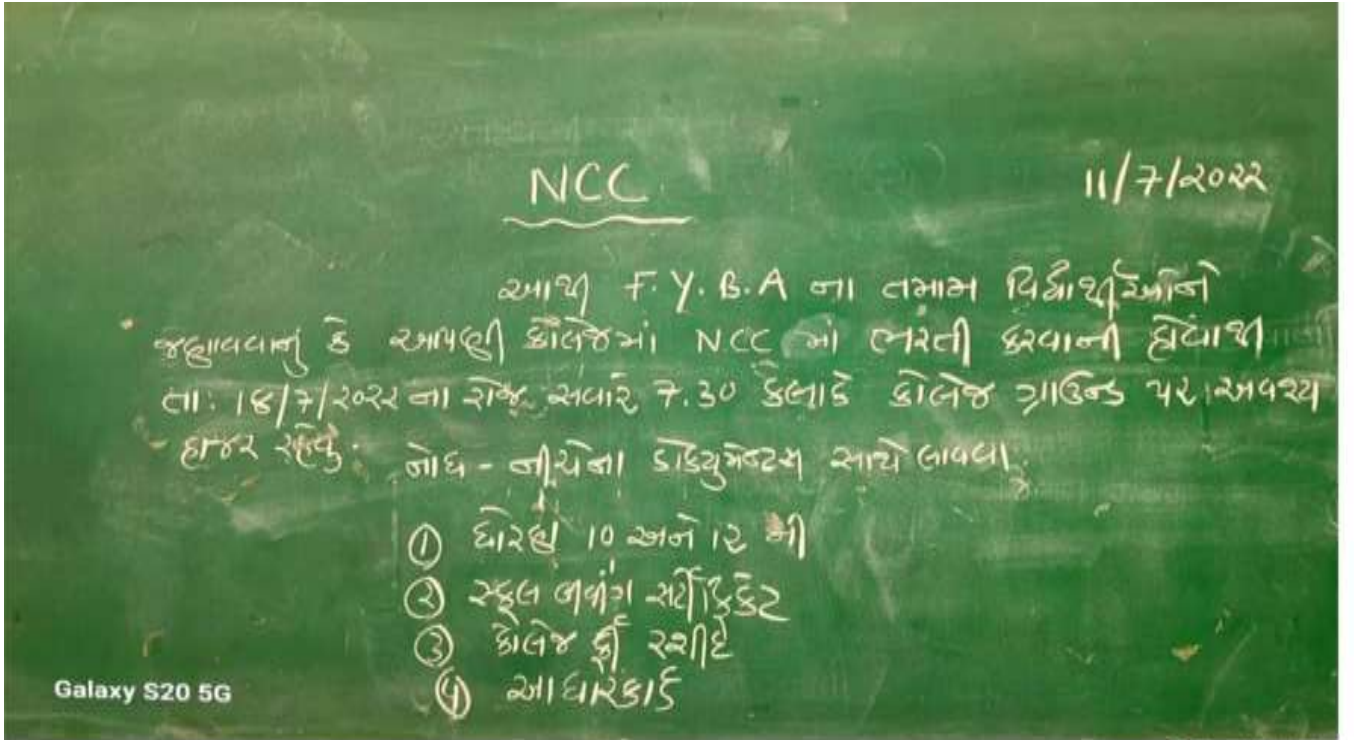 NCC
11/7/૨૦૨૨
આથી F.Y.B.A ના તમામ વિદ્યાર્થીઓને
જણાવવાનું કે આપણી કોલેજમાં NCC માં ભરતી કરવાની હોવાથી
તા: 18/7/૨૦૨૨ ના રોજ સવારે 7.30 કલાકે કોલેજ ગ્રાઉન્ડ પર અવશ્ય
હાજર રહેવું.
નોધ - નીચેના ડોક્યુમેન્ટસ સાથે લાવવા.
① ધોરણ ૧૦ અને ૧૨ ની
② સ્કૂલ લીવીંગ સર્ટીફિકેટ
③ કોલેજ ફી રશીદ
④ આધારકાર્ડ
Galaxy S20 5G